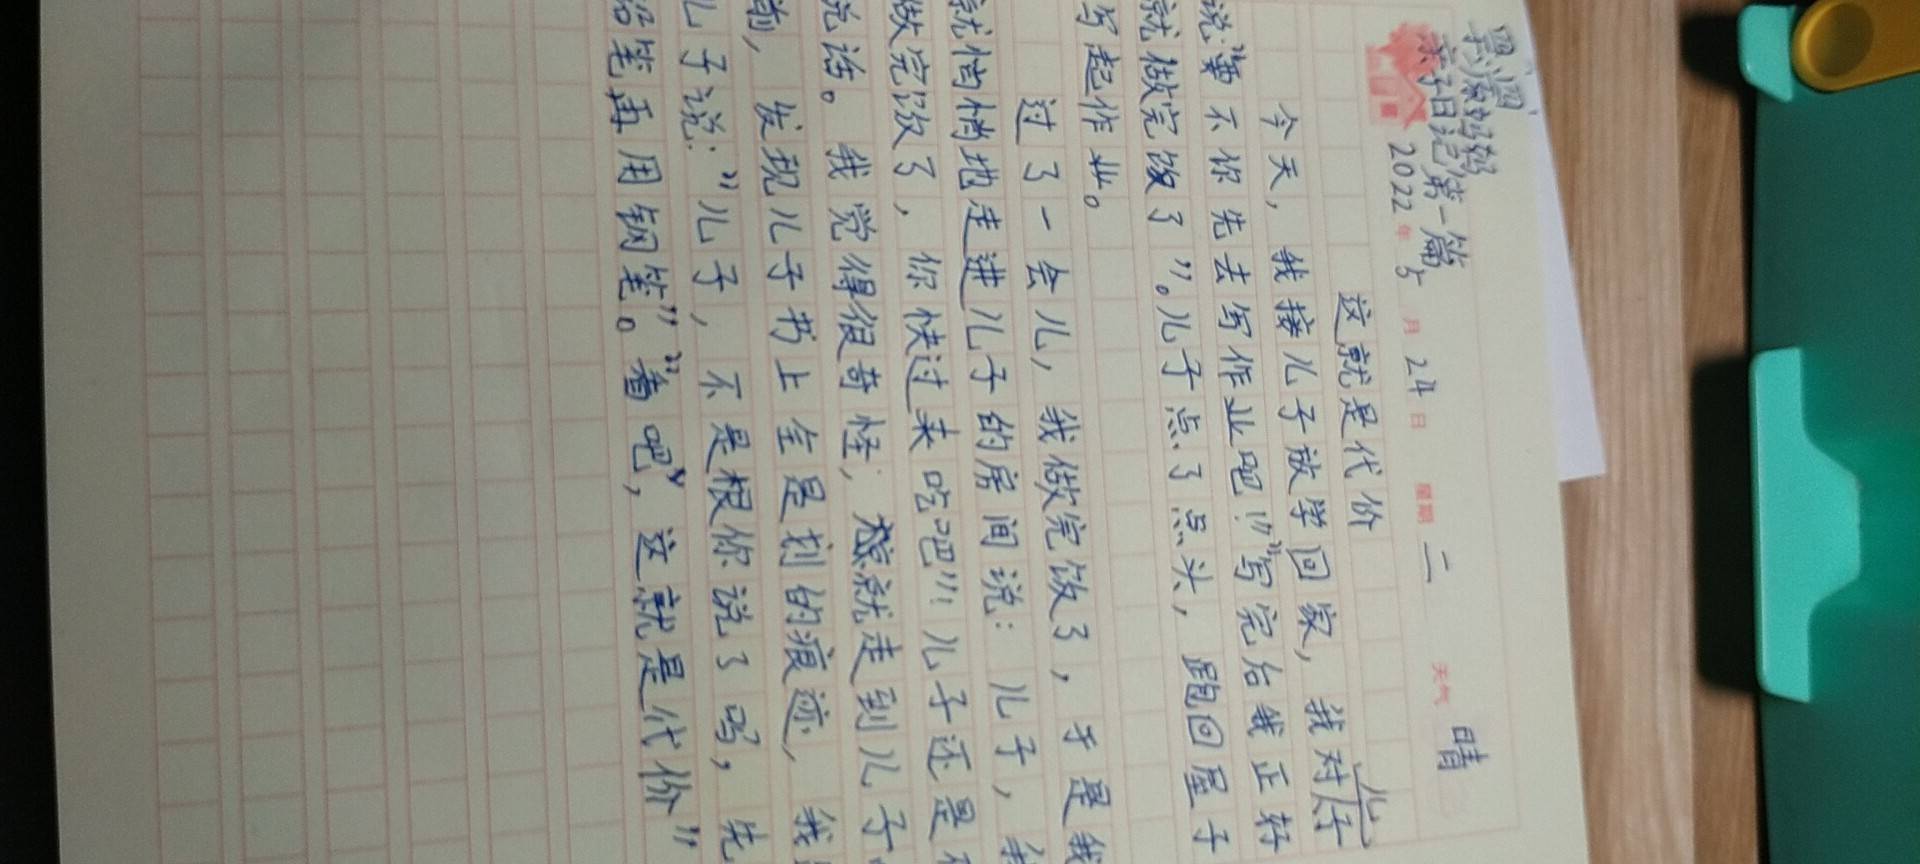 亲子日记第一篇
2022年5月24日 星期二 天气 晴
这就是代价
今天，我接儿子放学回家，我对儿子
说“要不你先去写作业吧！”写完后我正好
就做完饭了”。儿子点了点头，跑回屋子
写起作业。
过了一会儿，我做完饭了，于是我
就悄悄地走进儿子的房间说：儿子，我
做完饭了，你快过来吃吧！”！儿子还是
说话。我觉得很奇怪，就走到儿子
前，发现儿子书上全是划的痕迹，我
儿子说：“儿子，不是根你说了吗，先
铅笔再用钢笔”。“看吧”，这就是代价”